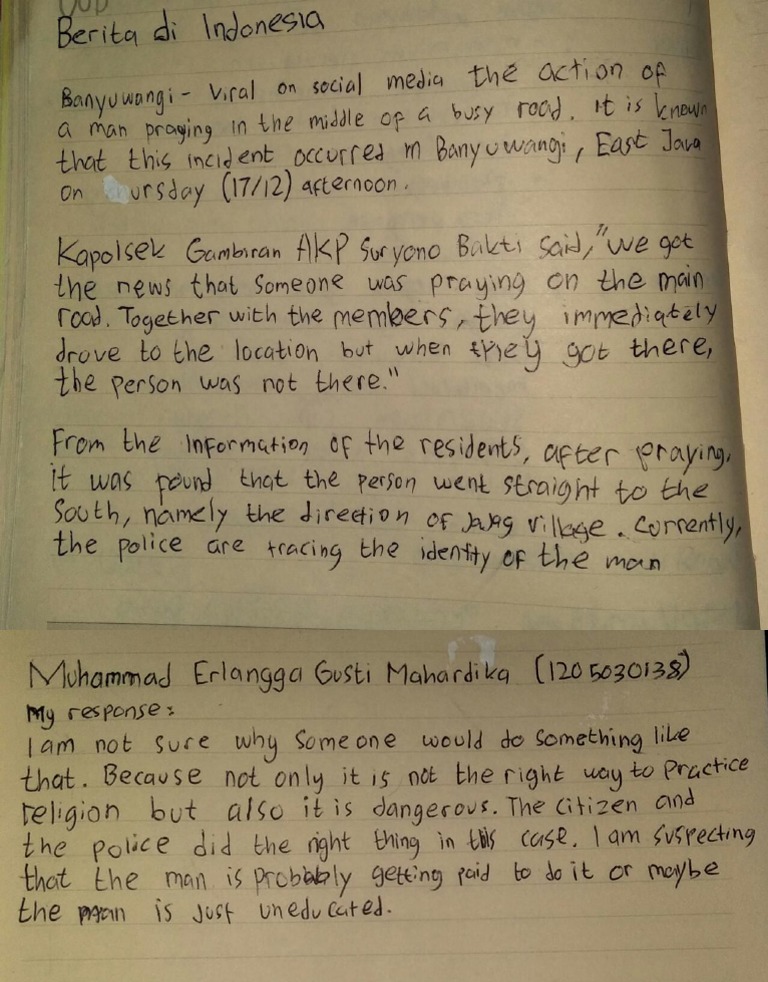 Berita di Indonesia
Banyuwangi - Viral on social media the action of
a man praying in the middle of a busy road. it is known
that this incident occurred in Banyuwangi, East Java
on ursday (17/12) afternoon.
Kapolsek Gambiran AKP Suryono Bakti said, "we got
the news that someone was praying on the main
road. Together with the members, they immediately
drove to the location but when they got there,
the person was not there."
From the information of the residents, after praying,
it was found that the person went straight to the
South, namely the direction of Jajag village. Currently,
the police are tracing the identity of the man
Muhammad Erlangga Gusti Mahardika (1205030138)
My response:
I am not sure why someone would do something like
that. Because not only it is not the right way to practice
religion but also it is dangerous. The citizen and
the police did the right thing in this case. I am suspecting
that the man is probably getting paid to do it or maybe
the man is just uneducated.